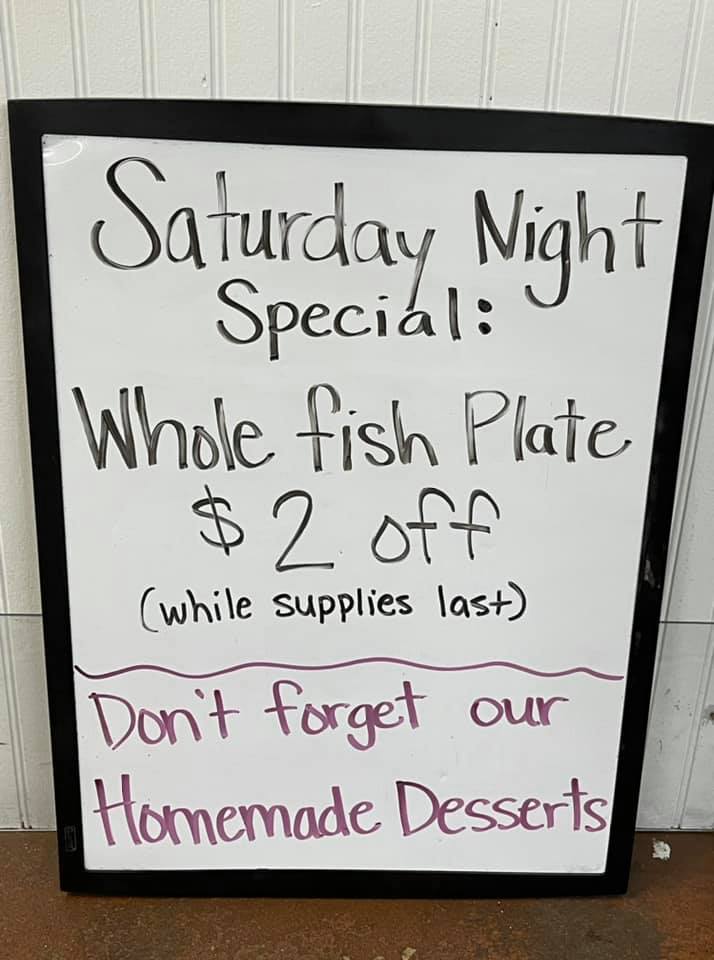 Saturday Night
Special:
Whole fish Plate
$2 off
(while supplies last)
Don't forget our
Homemade Desserts